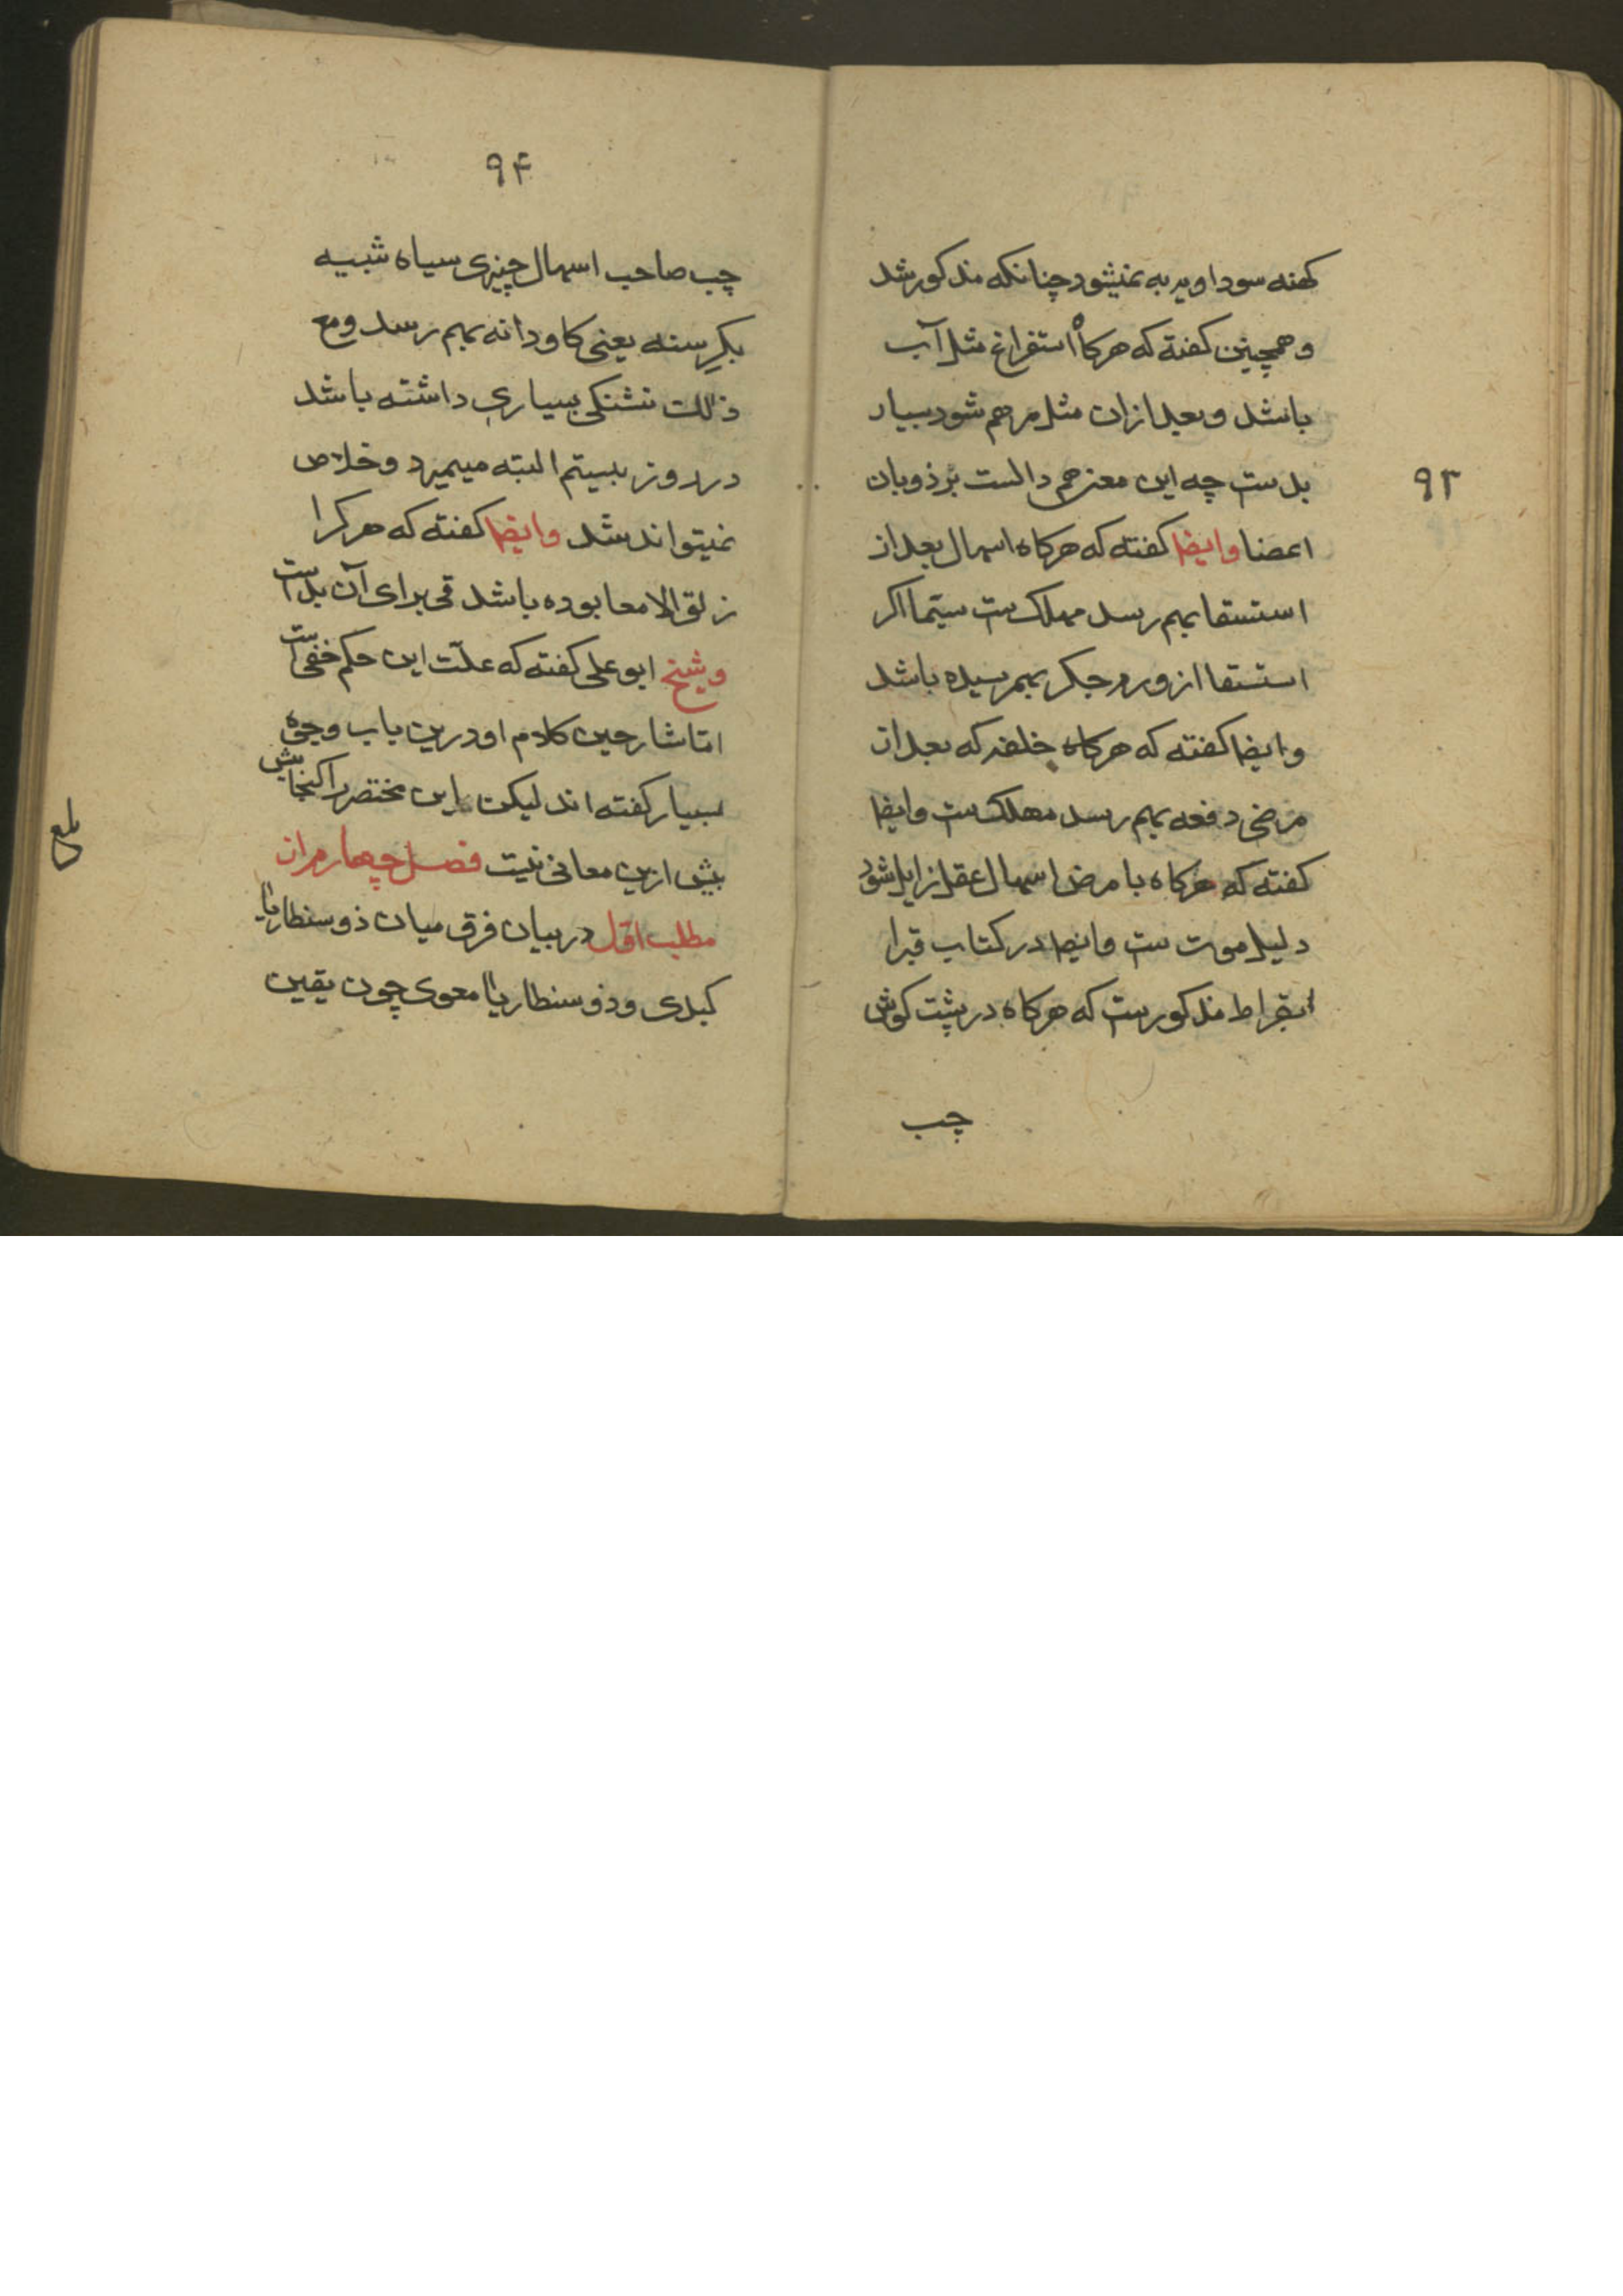 ۹۳
کهنه سوداویه به نمیشود چنانکه مذکور شد
و همچنین کفته که هرکاه استفراغ مثل آب
باشد و بعد ازان مثل مرهم شود بسیار
بدست چه این معنی هم دالست بر ذوبان
اعضا وایضا کفته که هرکاه اسهال بعد از
استسقا بهم رسد مهلک ست سیّما اکر
استسقا از ورم جکر بهمرسیده باشد
وایضا کفته که هرکاه خلفه که بعد از
مرضی دفعه بهم رسد مهلک ست وایضا
کفته که هرکاه با مرض اسهال عقل زایل شود
دلیل موت ست وایضا در کتاب قبرا
بقراط مذکورست که هرکاه در پشت کوش
چب
۹۴
چب صاحب اسهال چیزی سیاه شبیه
بکرسنه یعنی کاودانه بهم رسد ومع
ذلک تشنکی بسیاری داشته باشد
در روز بیستم البته میمیرد و خلاص
نمیتواند شد وایضا کفته که هر کرا
زلق الامعا بوده باشد قی برای آن بدست
وشیخ ابو علی کفته که علّت این حکم خفی است
امّا شارحین کلام او درین باب وجوه
بسیار کفته اند لیکن این مختصر را کنجایش
بیش ازین معانی نیست فصل چهارم از
مطلب اوّل در بیان فرق میان ذوسنطاریا
کبدی و ذوسنطاریا معوی چون یقین
بلغ